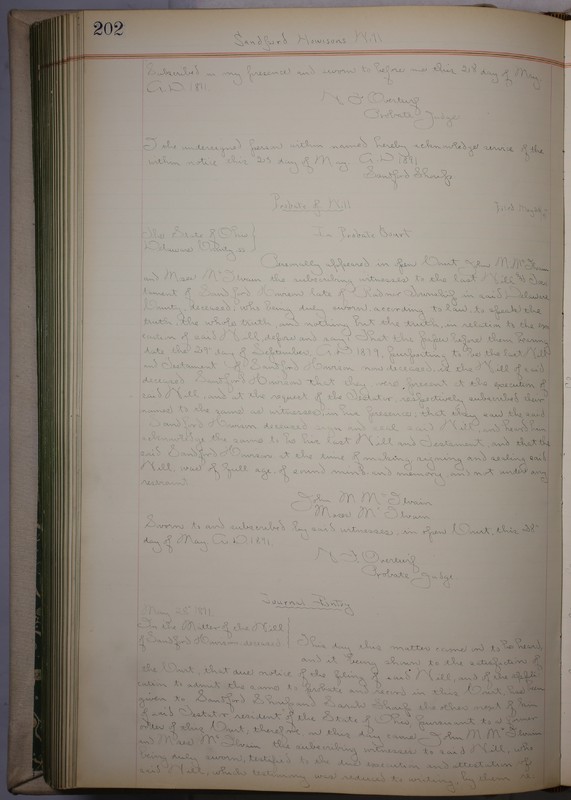 202
Sandford Will
Subscribed in my presence and sworn to before me this 21st day of May
A.D. 1891
Probate Judge
I the undersigned person within named hereby acknowledge service of the
within notice this 23 day of May A.D. 1891
Probate of Will
The State of Ohio
Delaware County ss
In Probate Court
Personally appeared in open Court John M. McIlvain
and Moses McIlvain the subscribing witnesses to the last Will & Tes-
tament of Sandford late of Radnor Township in said Delaware
County, deceased, who being duly sworn according to law, to speak the
truth, the whole truth, and nothing but the truth, in relation to the exe-
cution of said Will, depose and say: That the paper before them bearing
date the day of September A.D. 1879, purporting to be the last Will
and Testament of Sandford now deceased, is the Will of said
deceased Sandford that they were present at the execution of
said Will, and at the request of the Testator, respectively subscribed their
names to the same as witnesses, in his presence; that they saw the said
Sandford deceased sign and seal said Will, and heard him
acknowledge the same to be his last Will and Testament, and that the
said Sandford at the time of making, signing and sealing said
Will was of full age, of sound mind and memory, and not under any
restraint.
John M. McIlvain
Moses McIlvain
Sworn to and subscribed by said witnesses, in open Court, this 28
day of May A.D. 1891.
Probate Judge
Journal Entry
May 28 1891
In the Matter of the Will
of Sandford deceased
This day this matter came on to be heard
and it being shown to the satisfaction of
the Court, that due notice of the filing of said Will, and of the appli-
cation to admit the same to probate and record in this Court, has been
given to Sandford and Sarah the other next of kin
of said Testator resident of the State of Ohio pursuant to a former
order of this Court, therefore on this day came John M. McIlvain
and Moses McIlvain the subscribing witnesses to said Will, who
being duly sworn, testified to the due execution and attestation of
said Will, which testimony was reduced to writing, by them